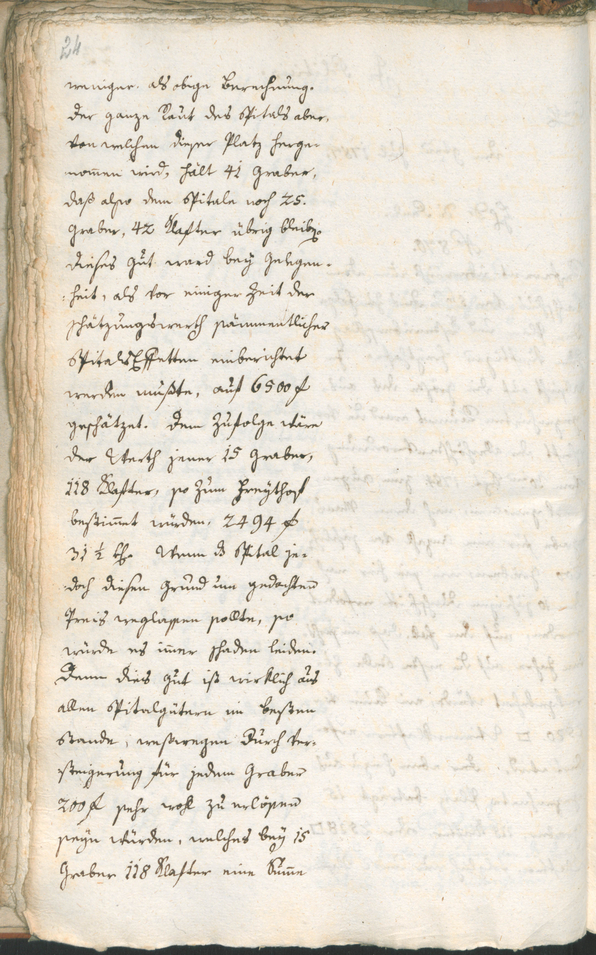 24
weniger als obige Berechnung.
Der ganze Raut des Spitals aber,
von welchem dieser Platz herge-
nommen wird, hält 41 Graber,
daß also dem Spitale noch 25.
Graber, 42 Klafter übrig bleiben.
Dieses Gut ward bey Gelegen-
heit, als vor einiger Zeit der
Schätzungswerth sämmentlicher
Spitals Effetten einberichtet
werden mußte, auf 6500 f
geschätzet. Dem zufolge wäre
der Werth jener 15 Graber,
118 Klafter, so zum Freythof
bestimmt würden, 2494 f
31 ½ kr. Wenn das Spital je-
doch diesen Grund um gedachten
Preis weglassen sollte, so
würde es immer Schaden leiden.
Denn dies Gut ist wirklich aus
allen Spitalgütern im besten
Stande, weßwegen durch Ver-
steigerung für jedem Graber
200 f sehr wohl zu erlösen
seyn würden, welches bey 15
Graber 118 Klafter eine Summe